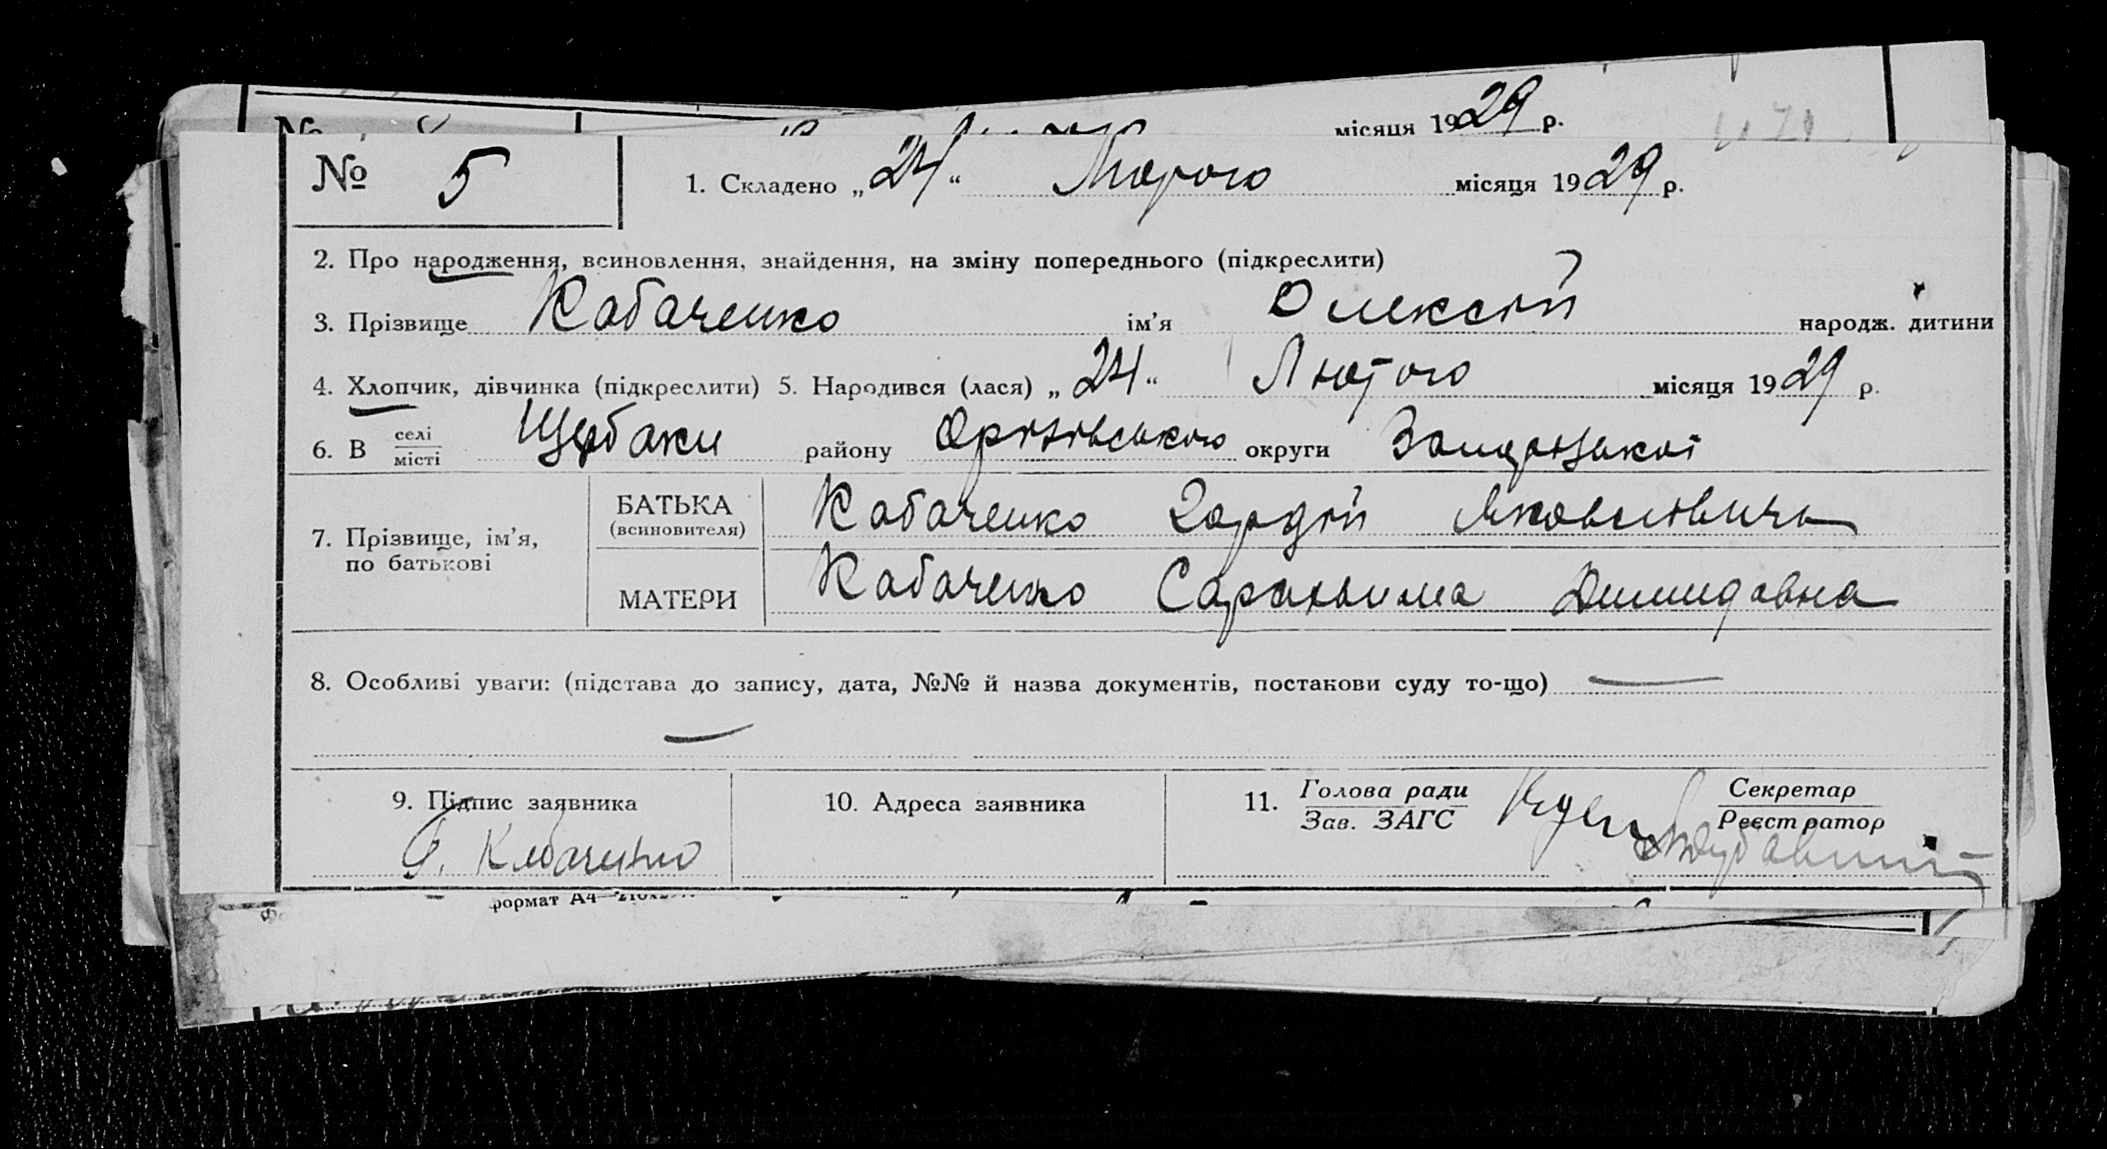 місяця 1929 р.
№ 5
1. Складено „24“ Лютого місяця 1929 р.
2. Про народження, всиновлення, знайдення, на зміну попереднього (підкреслити)
3. Прізвище Кабаченко ім’я Олексій народж. дитини
4. Хлопчик, дівчинка (підкреслити) 5. Народився (лася) „24“ Лютого місяця 1929 р.
6. В селі
місті Щербаки району Оріхівського округи Запорізької
7. Прізвище, ім’я,
по батькові
БАТЬКА
(всиновителя)
Кабаченко Гордій Яковлевичь
МАТЕРИ Кабаченко Демидовна
8. Особливі уваги: (підстава до запису, дата, №№ й назва документів, постакови суду то-що) —
—
9. Підпис заявника
Г. Кабаченко
10. Адреса заявника
11. Голова ради
Зав. ЗАГС
Секретар
Реєстратор
формат А4